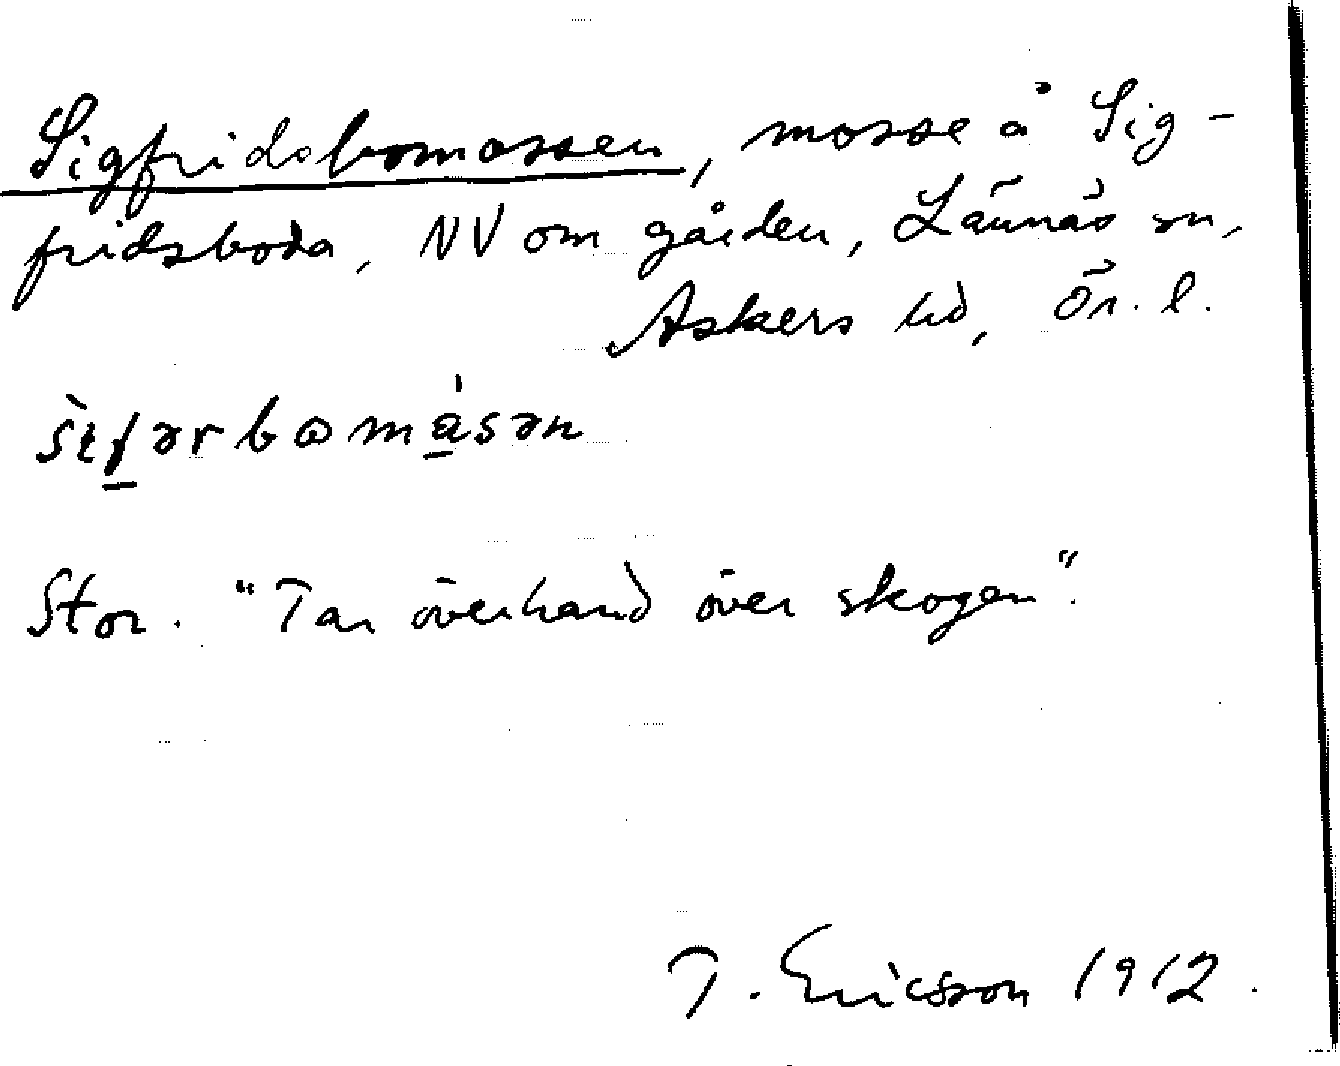 Sigfridsbomossen, mosse å Sig-
fridsboda, NV om gården, Lännäs sn,
Askers hd, Ör. l.
sɩ̀fərbωmásən
Stor. "Tar överhand över skogen".
T. Ericsson 1912.